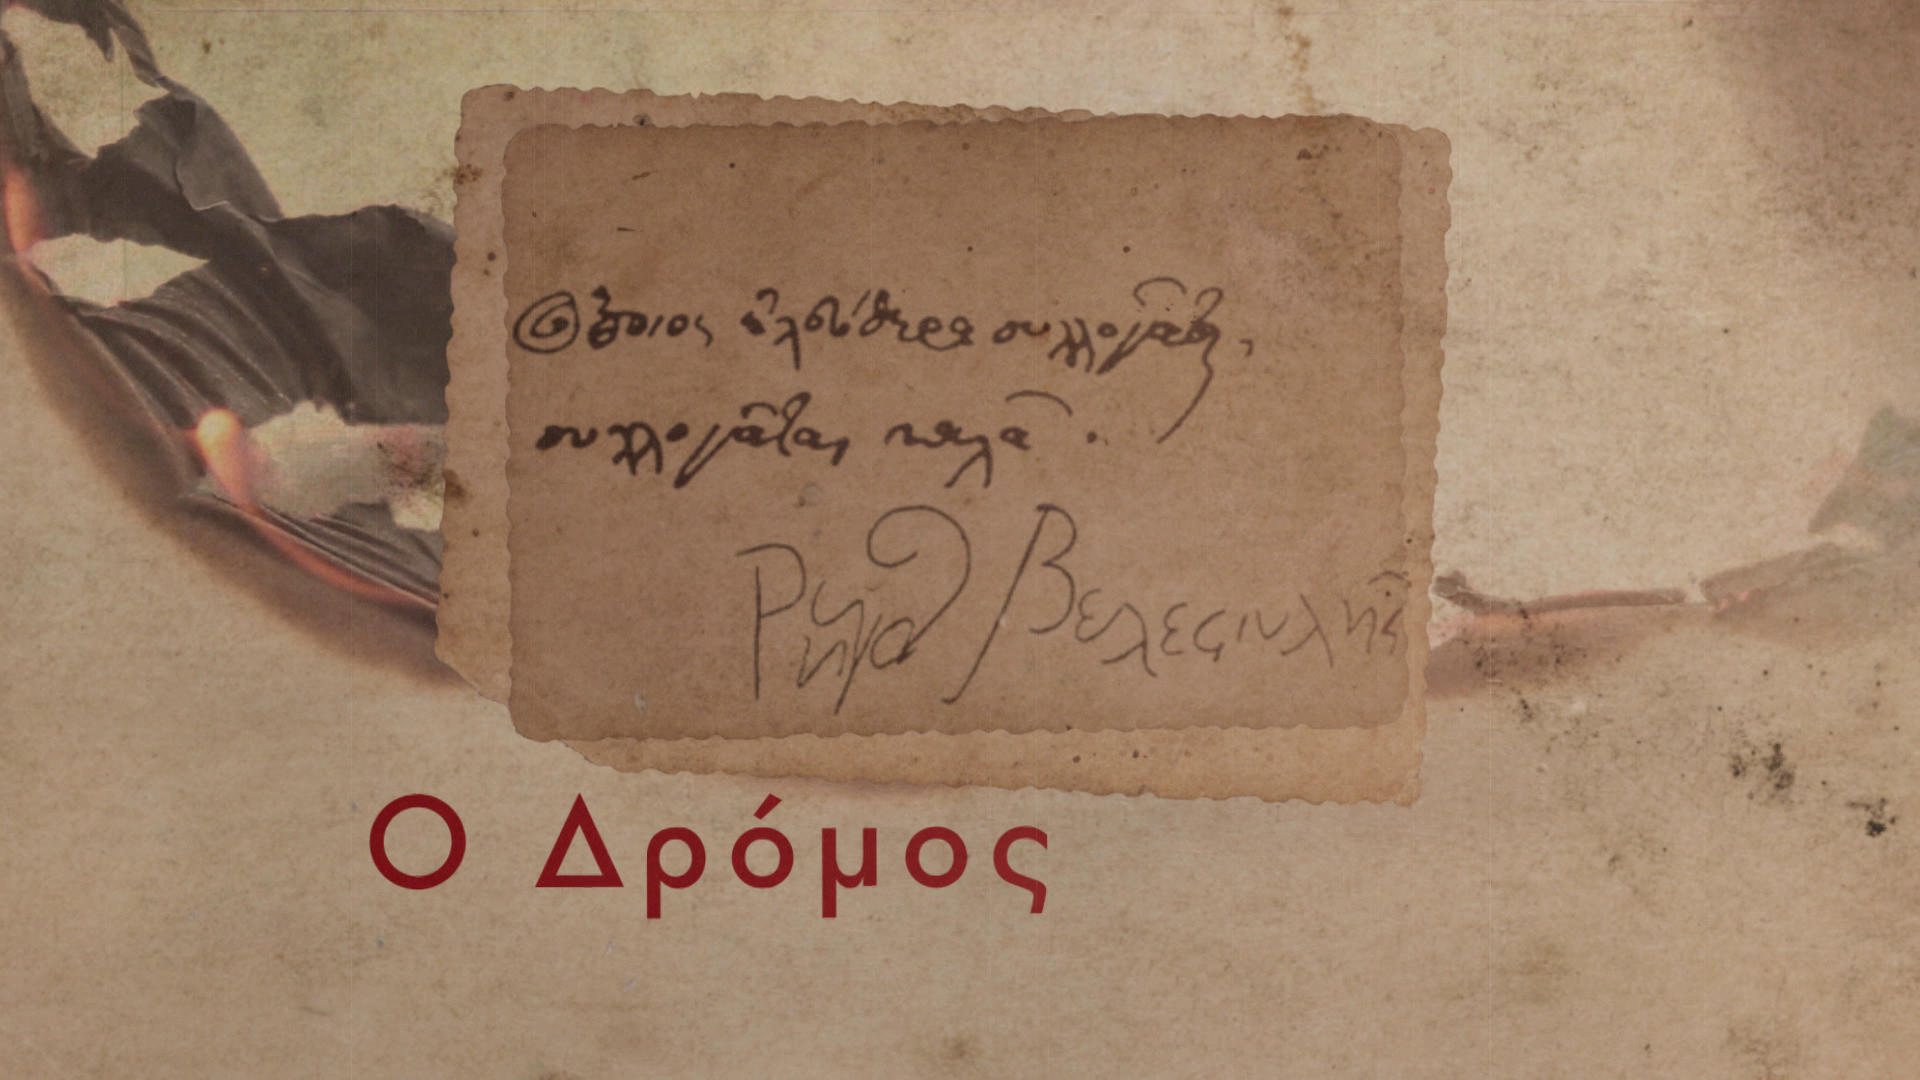 Ὅποιος ἐλεύθερα συλλογᾶται,
συλλογᾶται καλά.
Ρήγα Βελεςινλῆς
Ο Δρόμος